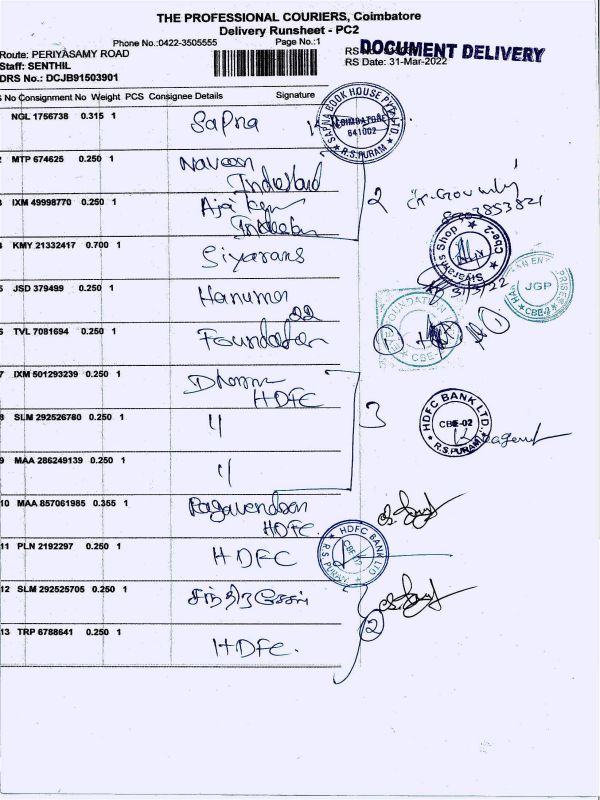 THE PROFESSIONAL COURIERS, Coimbatore
Delivery Runsheet - PC2
Phone No.:0422-3505555 Page No.:1
Route: PERIYASAMY ROAD
Staff: SENTHIL
DRS No.: DCJB91503901
DOCUMENT DELIVERY
RS Date: 31-Mar-2022
No Consignment No Weight PCS Consignee Details Signature
NGL 1756738 0.315 1 Sapna
SAPNA BOOK HOUSE PVT LTD.
COIMBATORE
641002
R.S.PURAM
MTP 674625 0.250 1 Naveen
IXM 49998770 0.250 1
2
KMY 21332417 0.700 1 Siyarans
Shop
Cbe-2
JSD 379499 0.250 1 Hanuman
31/3/22
JGP
CBE-2
TVL 7081694 0.250 1 Foundation
FOUNDATION
CBE-2
1
1
7 IXM 501293239 0.250 1
HDFC
SLM 292526780 0.250 1 "
3
HDFC BANK LTD
CBE-02
R.S.PURAM
MAA 286249139 0.250 1 "
10 MAA 857061985 0.355 1 Ragavendran
HDFC.
11 PLN 2192297 0.250 1 HDFC
HDFC BANK LTD
R.S. PURAM
12 SLM 292525705 0.250 1
2
13 TRP 6788641 0.250 1 HDFC.